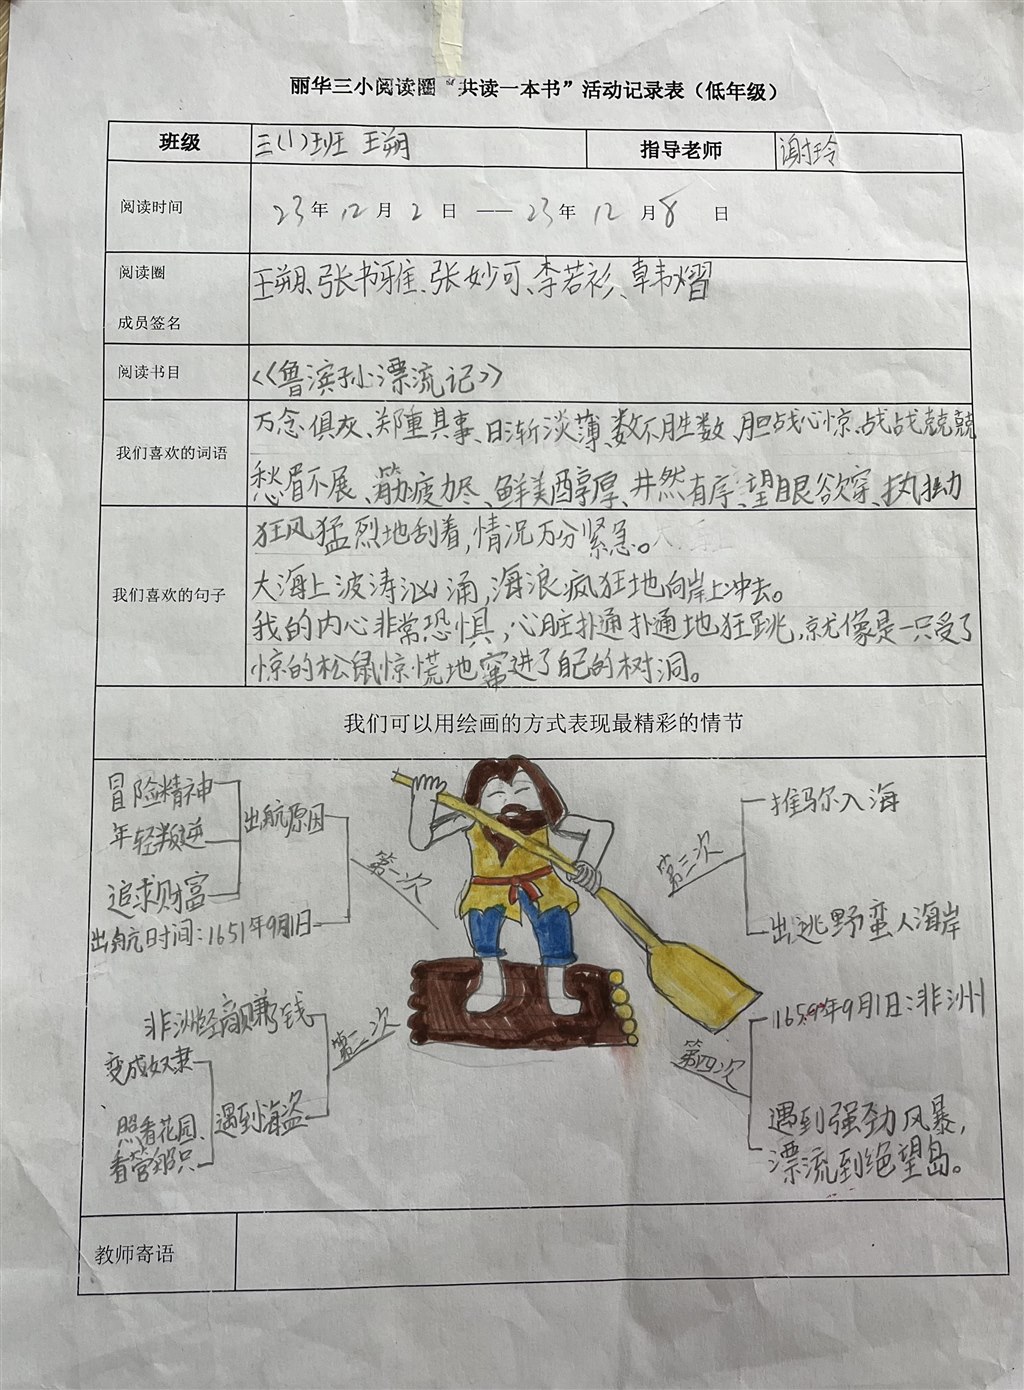 丽华三小阅读圈“共读一本书”活动记录表（低年级）
班级 三(1)班 王朔 指导老师 谢玲
阅读时间 23年12月2日 —— 23年12月8日
阅读圈
成员签名
王朔、张书雅、张妙可、李若衫、韩熠
阅读书目 《鲁滨孙漂流记》
我们喜欢的词语
万念俱灰、郑重其事、日渐淡薄、数不胜数、胆战心惊、战战兢兢
愁眉不展、筋疲力尽、鲜美醇厚、井然有序、望眼欲穿、执拗
我们喜欢的句子
狂风猛烈地刮着，情况万分紧急。
大海上波涛汹涌，海浪疯狂地向岸上冲去。
我的内心非常恐惧，心脏扑通扑通地狂跳，就像是一只受了
惊的松鼠惊慌地窜进了自己的树洞。
我们可以用绘画的方式表现最精彩的情节
冒险精神
年轻叛逆
追求财富
出航原因
出航日时间：1651年9月1日
第一次
非洲经商赚了钱
变成奴隶
照看花园、
看管船只
遇到海盗
第二次
第三次
推马尔入海
出逃野蛮人海岸
第四次
1659年9月1日：非洲
遇到强劲风暴，
漂流到绝望岛。
教师寄语